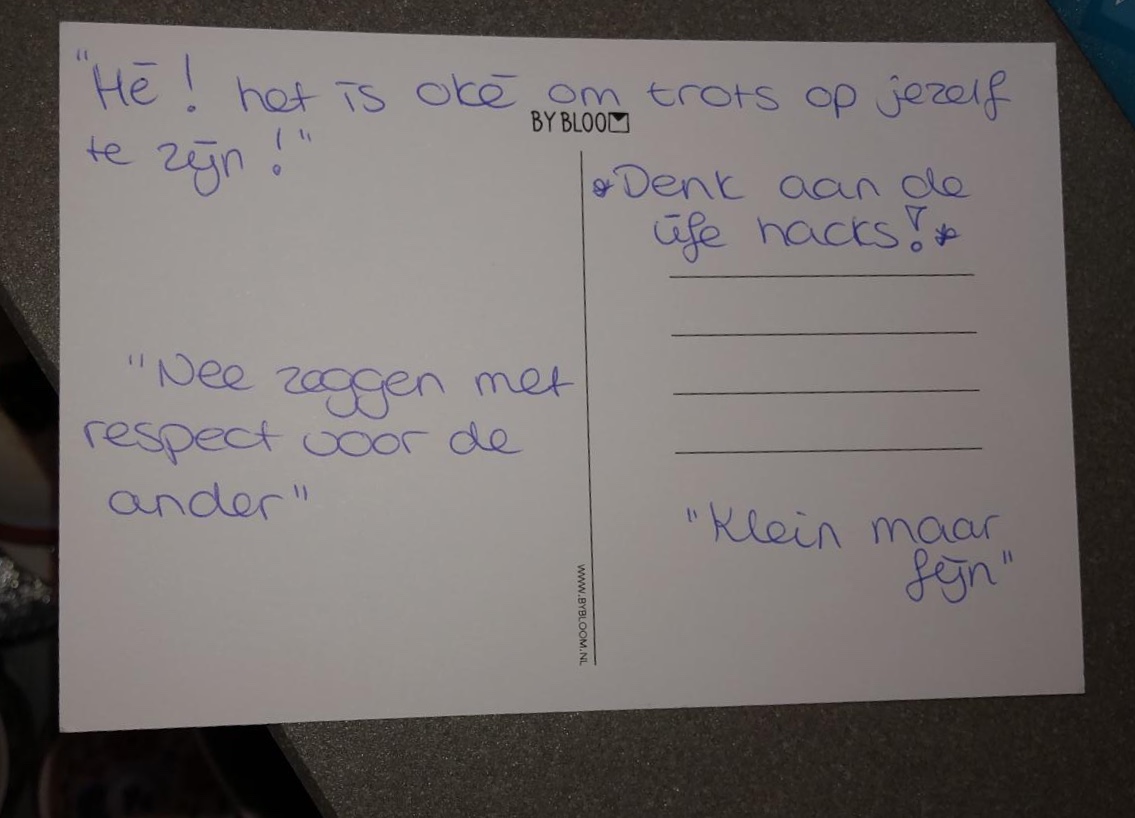 "Hé! het is oké om trots op jezelf
te zijn!"
BY BLOOM
*Denk aan de
life hacks!*
"Nee zeggen met
respect voor de
ander"
"Klein maar
fijn"
WWW.BYBLOOM.NL